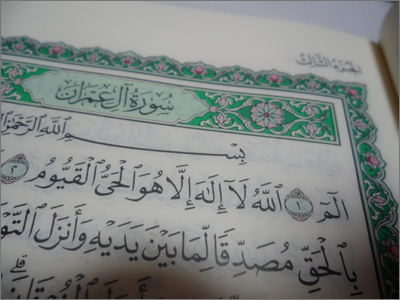 الجزء الثالث
سُورَةُ آلِ عِمْرَان
بِسْمِ ٱللَّهِ ٱلرَّحْمَٰنِ
الٓمٓ ١ ٱللَّهُ لَآ إِلَٰهَ إِلَّا هُوَ ٱلْحَىُّ ٱلْقَيُّومُ ٢
بِٱلْحَقِّ مُصَدِّقًا لِّمَا بَيْنَ يَدَيْهِ وَأَنزَلَ ٱلتَّوْ